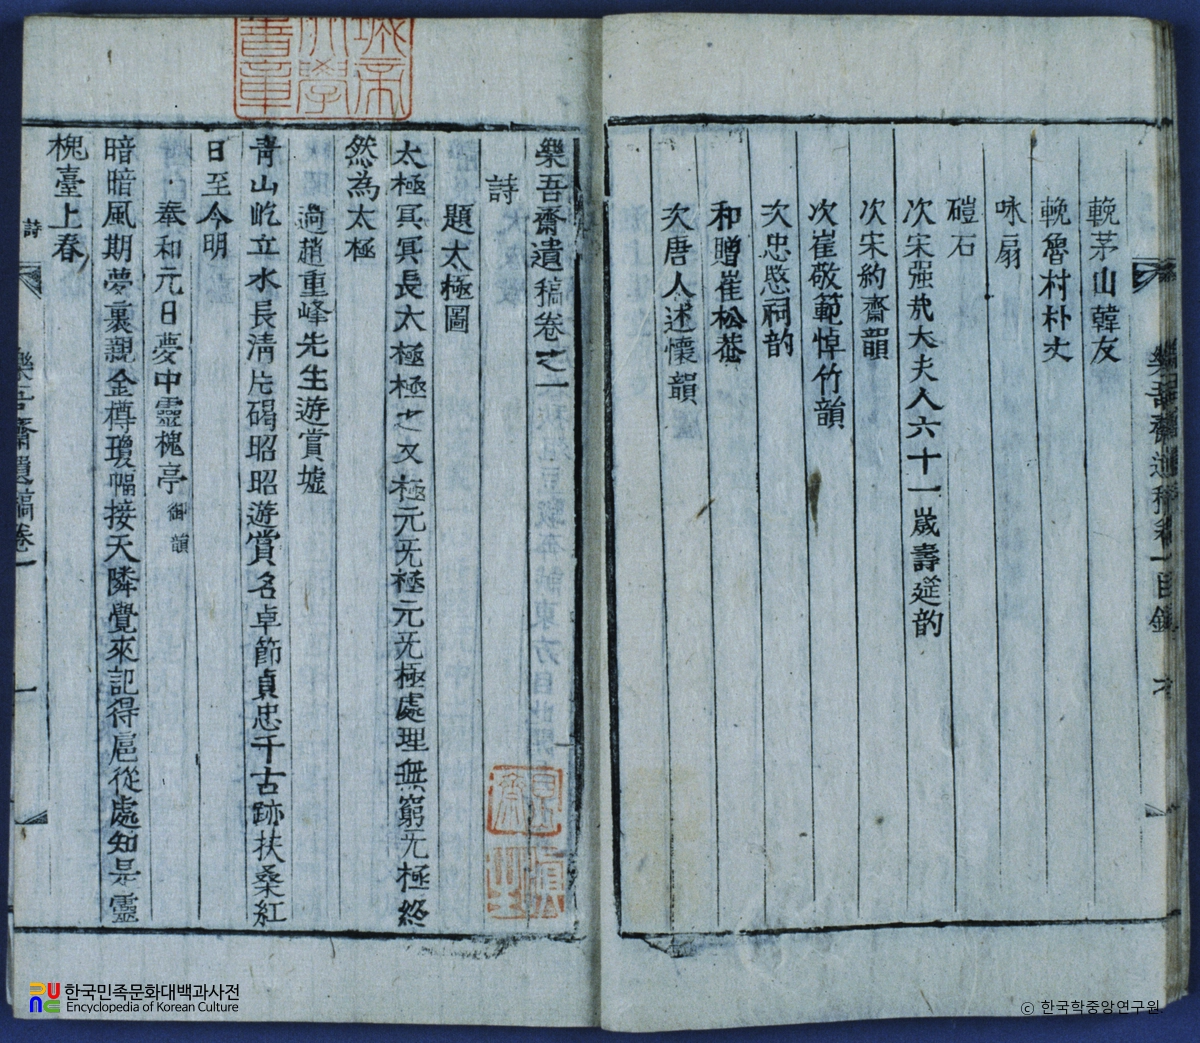 輓茅山韓友
輓魯村朴丈
咏扇
磑石
次宋强㢤大夫人六十一歲壽筵韵
次宋約齋韻
次崔敬範悼竹韻
次忠愍祠韵
和贈崔松菴
次唐人述懷韻
樂吾齋遺稿卷之一
詩
題太極圖
太極冥冥長太極極之又極元无極元无極處理無窮无極終
然為太極
過趙重峰先生遊賞墟
靑山屹立水長淸片碣昭昭遊賞名卓節貞忠千古跡扶桑紅
日至今明
奉和元日夢中靈槐亭 御韻
暗暗風期夢裏親金樽瓊幅接天隣覺來記得扈從處知是靈
槐臺上春
詩
樂吾齋遺稿卷一
一
한국민족문화대백과사전
Encyclopedia of Korean Culture
ⓒ 한국학중앙연구원